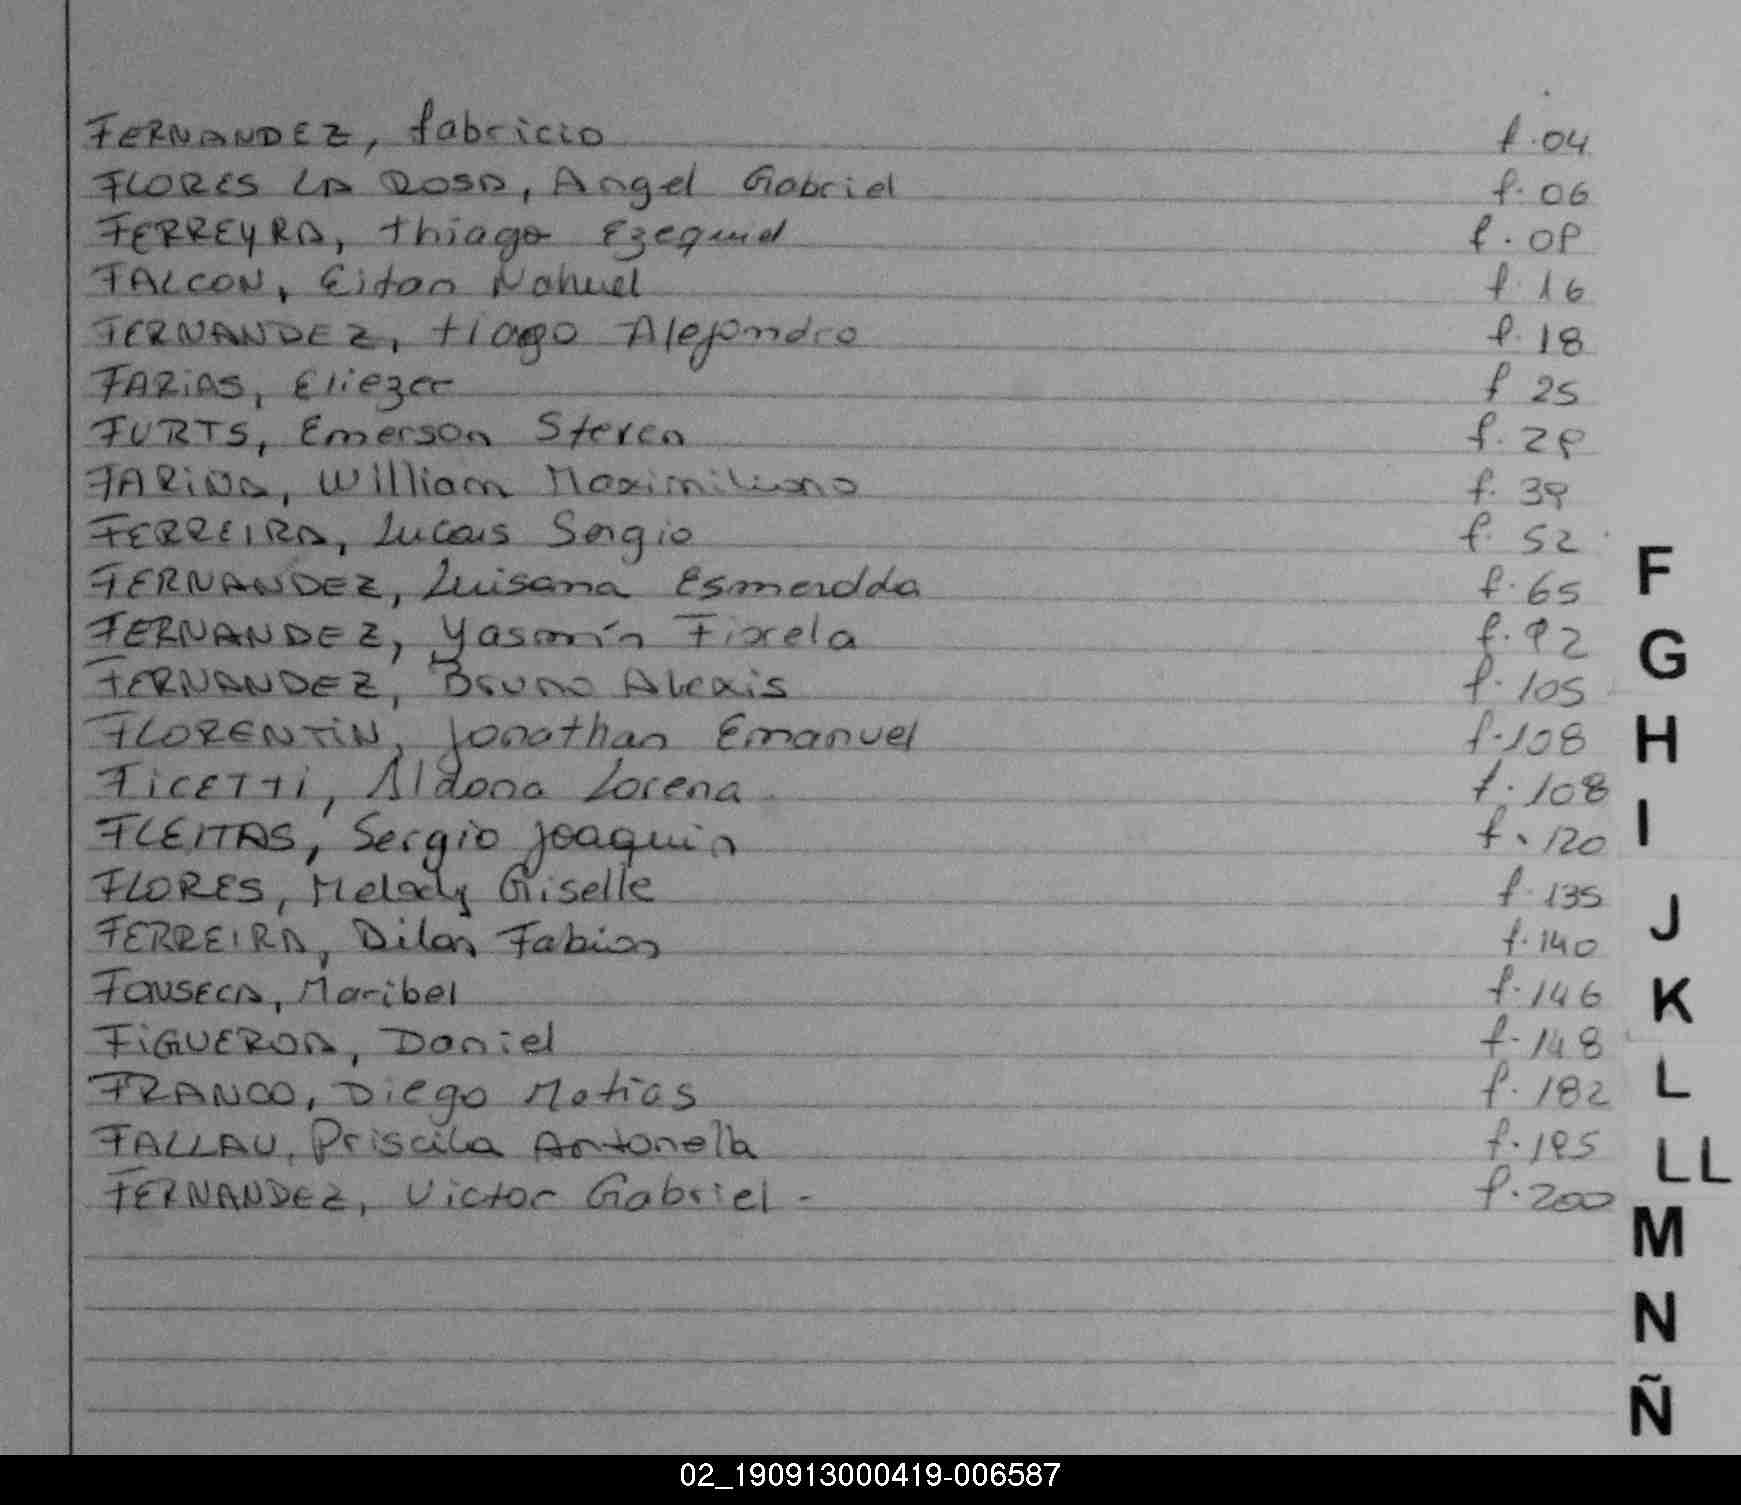 FERNANDEZ, fabricio f. 04
FLORES LA ROSA, Angel Gabriel f. 06
FERREYRA, thiago Ezequiel f. 09
FALCON, Eitan Nahuel f. 16
FERNANDEZ, tiago Alejandro f. 18
FARiAS, Eliezer f 25
FURTS, Emerson Steven f. 29
FARiNA, William Maximiliano f. 39
FERREIRA, Lucas Sergio f. 52
FERNANDEZ, Luisana Esmeralda f. 65
FERNANDEZ, Yasmín Fiorela f. 92
FERNANDEZ, Bruno Alexis f. 105
FLORENTiN, Jonathan Emanuel f. 108
FiCETTi, Aldana Lorena f. 108
FLEITAS, Sergio Joaquin f. 120
FLORES, Melody Giselle f. 135
FERREIRA, Dilan Fabian f. 140
FONSECA, Maribel f. 146
FiGUEROA, Daniel f. 148
FRANCO, Diego Matias f. 182
FALLAU, Priscila Antonella f. 195
FERNANDEZ, Victor Gabriel - f. 200
F
G
H
I
J
K
L
LL
M
N
Ñ
02_190913000419-006587